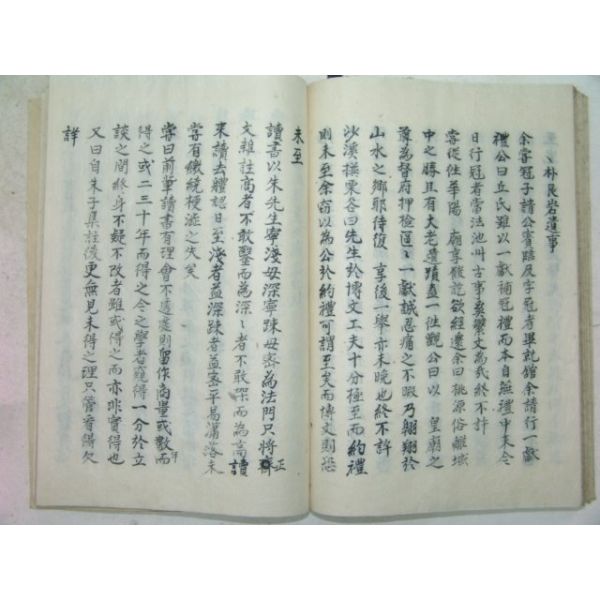 朴艮岩遺事
余嘗冠子請公賓臨及字冠者畢就館余請行一獻
禮公曰丘氏雖以一獻補冠禮而本自無禮中夫今
日行冠者當法池州古事矣繁文為哉終不許
嘗從往華陽 廟享儀訖欲經還余曰桃源俗離域
中之勝且有大老遺蹟盍一往觀公曰以 皇廟之
尊為督府押檢區一獻誠忍痛之不暇乃翱翔於
山水之鄉耶待後 享後一舉亦未晚也終不許
沙溪撰栗谷曰先生於博文工夫十分極至而約禮
則未至余窃以為公於約禮可謂至矣而博文則恐
未至
讀書以朱先生寧淺毋深寧踈毋密為法門只將齊正
文離註高者不敢鑿而為深深者不敢架而為高讀
來讀去體認日至淺者益深踈者益密平易滿落未
嘗有纖統梗澁之失矣
嘗曰前軰讀書有理會不透處則留作商量或數年而
得之或二三十年而得之今之學者窺得一分於立
談之間終身不疑不改者雖或得之而亦非實得也
又曰自朱子集註後更無見未得之理只管看得欠
詳